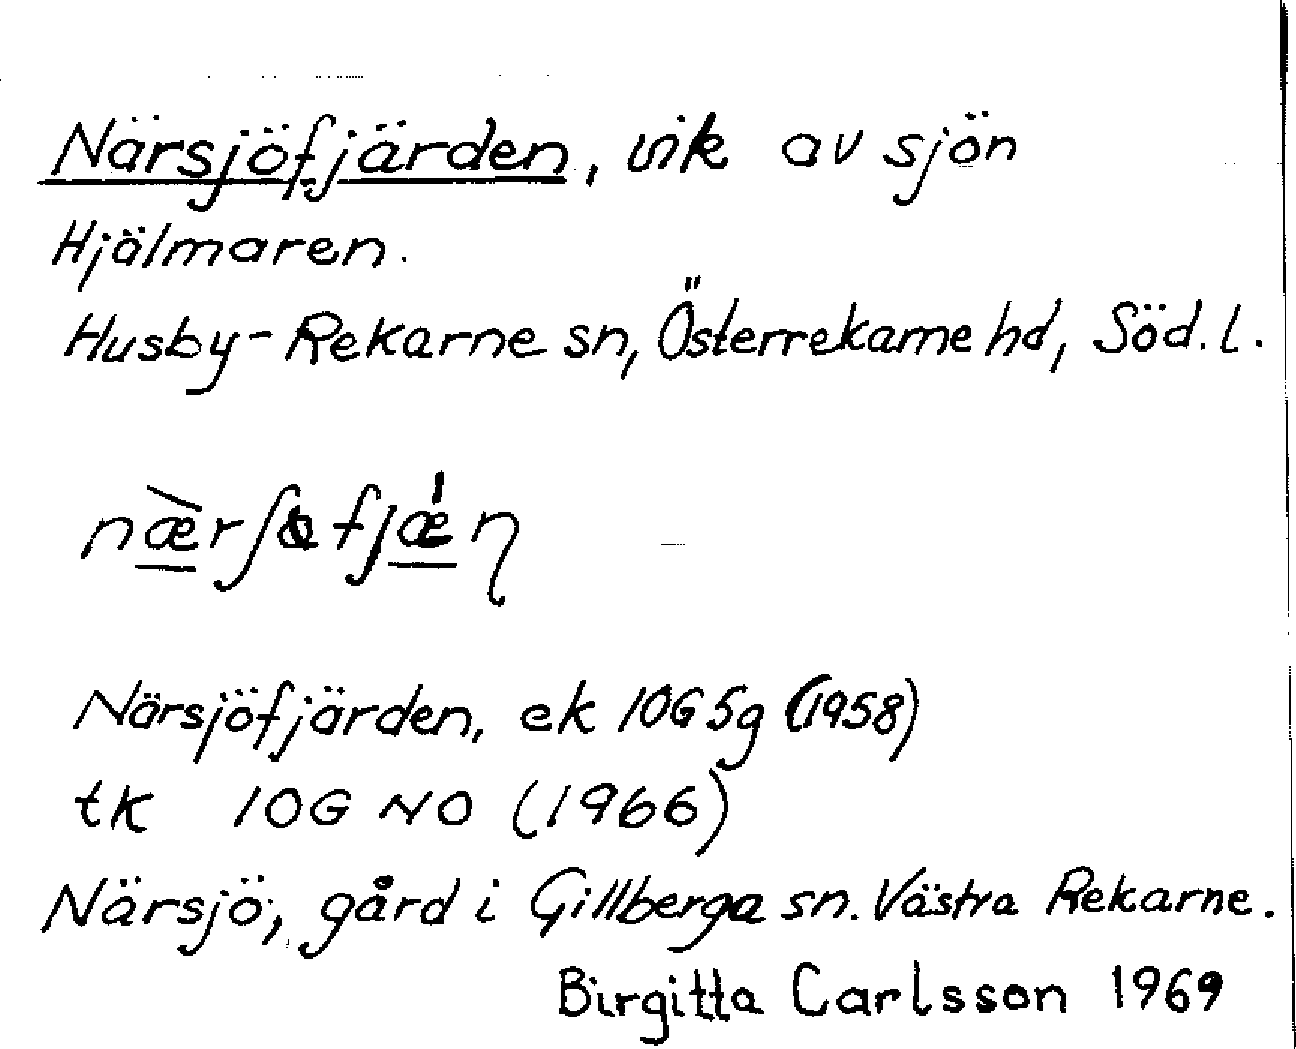 Närsjöfjärden, vik av sjön
Hjälmaren.
Husby-Rekarne sn, Österrekarne hd, Söd. l.
Närsjöfjärden, ek 10G 5g (1958)
tk 10G NO (1966)
Närsjö, gård i Gillberga sn. Västra Rekarne.
Birgitta Carlsson 1969